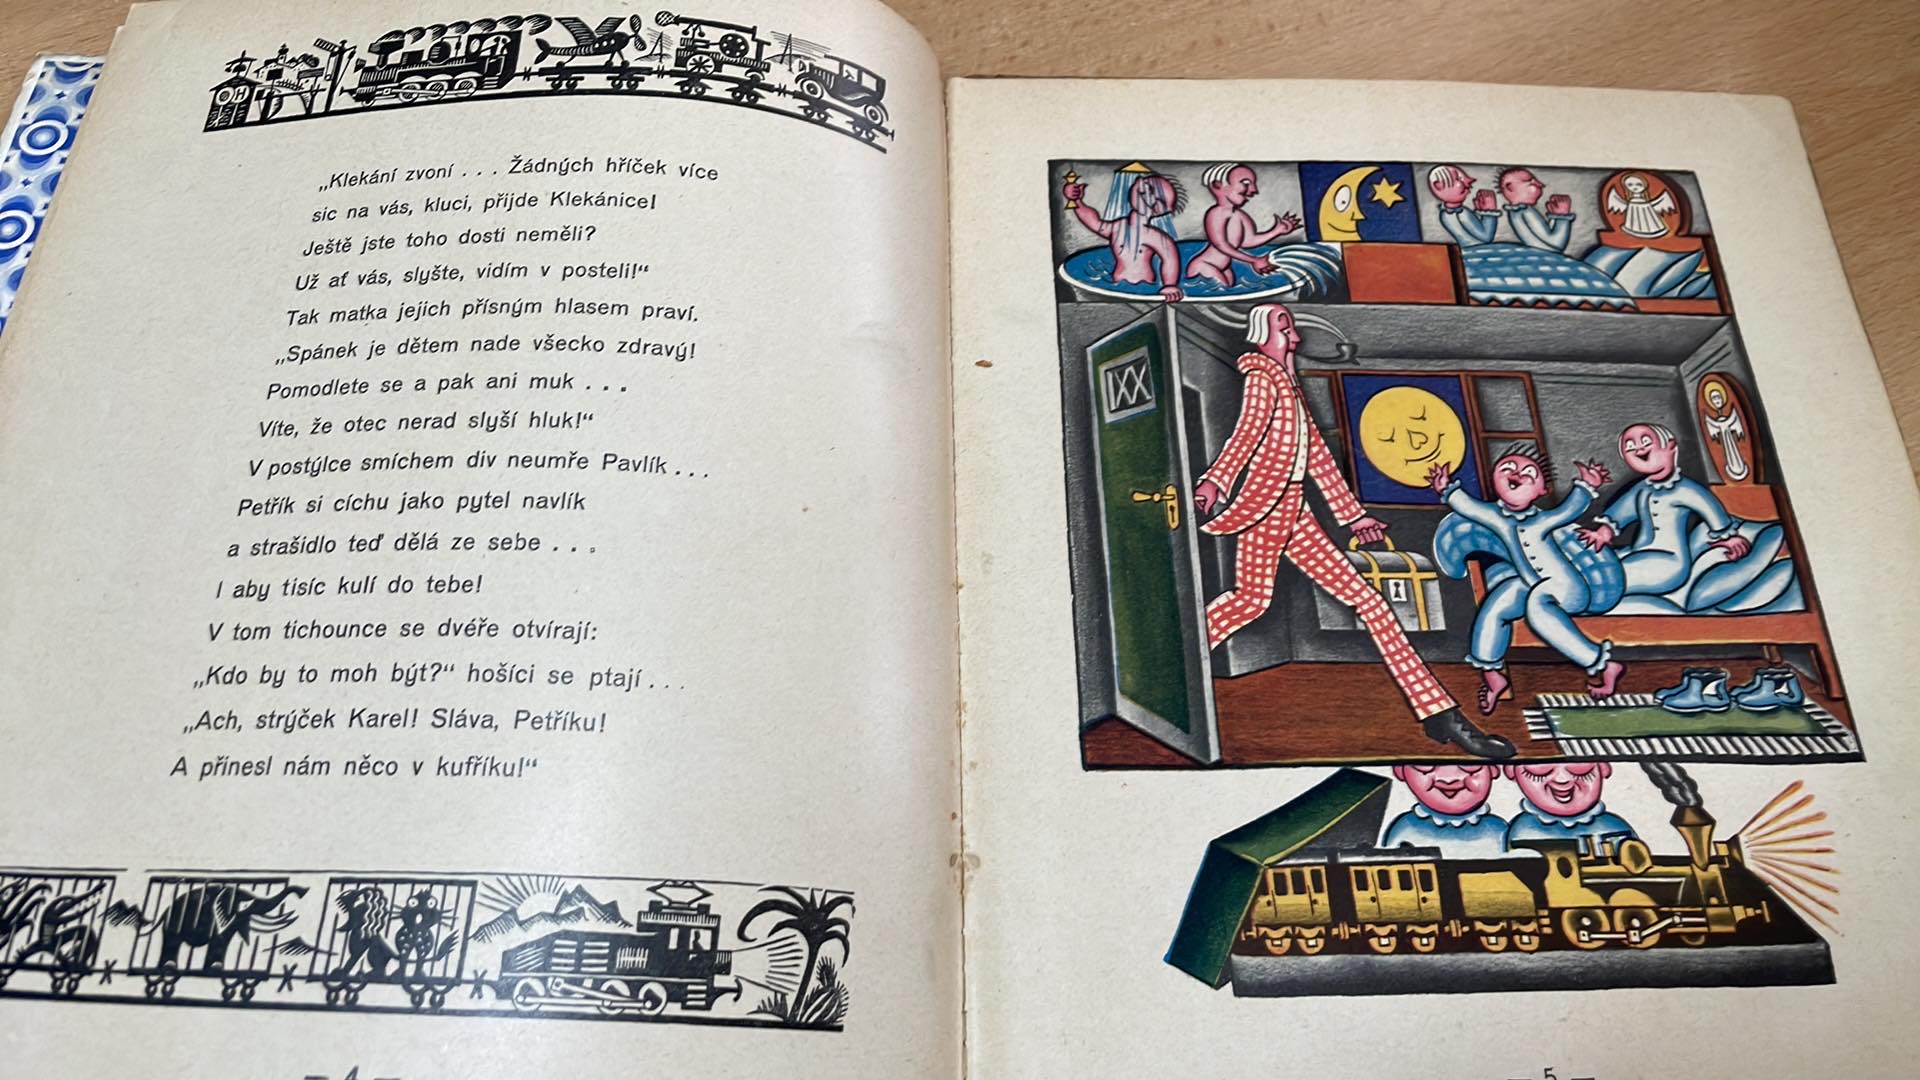 „Klekání zvoní . . . Žádných hříček více
sic na vás, kluci, přijde Klekánice!
Ještě jste toho dosti neměli?
Už ať vás, slyšte, vidím v posteli!“
Tak matka jejich přísným hlasem praví.
„Spánek je dětem nade všecko zdravý!
Pomodlete se a pak ani muk . . .
Víte, že otec nerad slyší hluk!“
V postýlce smíchem div neumře Pavlík . . .
Petřík si cíchu jako pytel navlík
a strašidlo teď dělá ze sebe . . .
I aby tisíc kulí do tebe!
V tom tichounce se dvéře otvírají:
„Kdo by to moh být?“ hošíci se ptají . . .
„Ach, strýček Karel! Sláva, Petříku!
A přinesl nám něco v kufříku!“
— 4 —
— 5 —